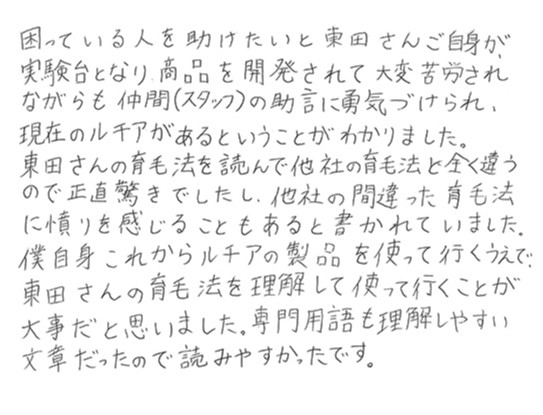 困っている人を助けたいと東田さんご自身が、
実験台となり、高品を開発されて大変苦労され
ながらも仲間(スタッフ)の助言に勇気づけられ、
現在のルチアがあるということがわかりました。
東田さんの育毛法を読んで他社の育毛法と全く違う
ので正直驚きでしたし、他社の間違った育毛法
に憤りを感じることもあると書かれていました。
僕自身これからルチアの製品を使って行くうえで、
東田さんの育毛法を理解して使って行くことが
大事だと思いました。専門用語も理解しやすい
文章だったので読みやすかったです。